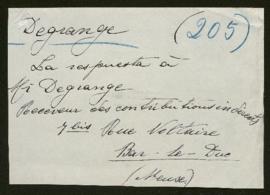 Degrange (205)
La respuesta à
Mr Degrange
Receveur des contributions indirectes
7 bis Rue Voltaire
Bar-le-Duc
(Meuse)